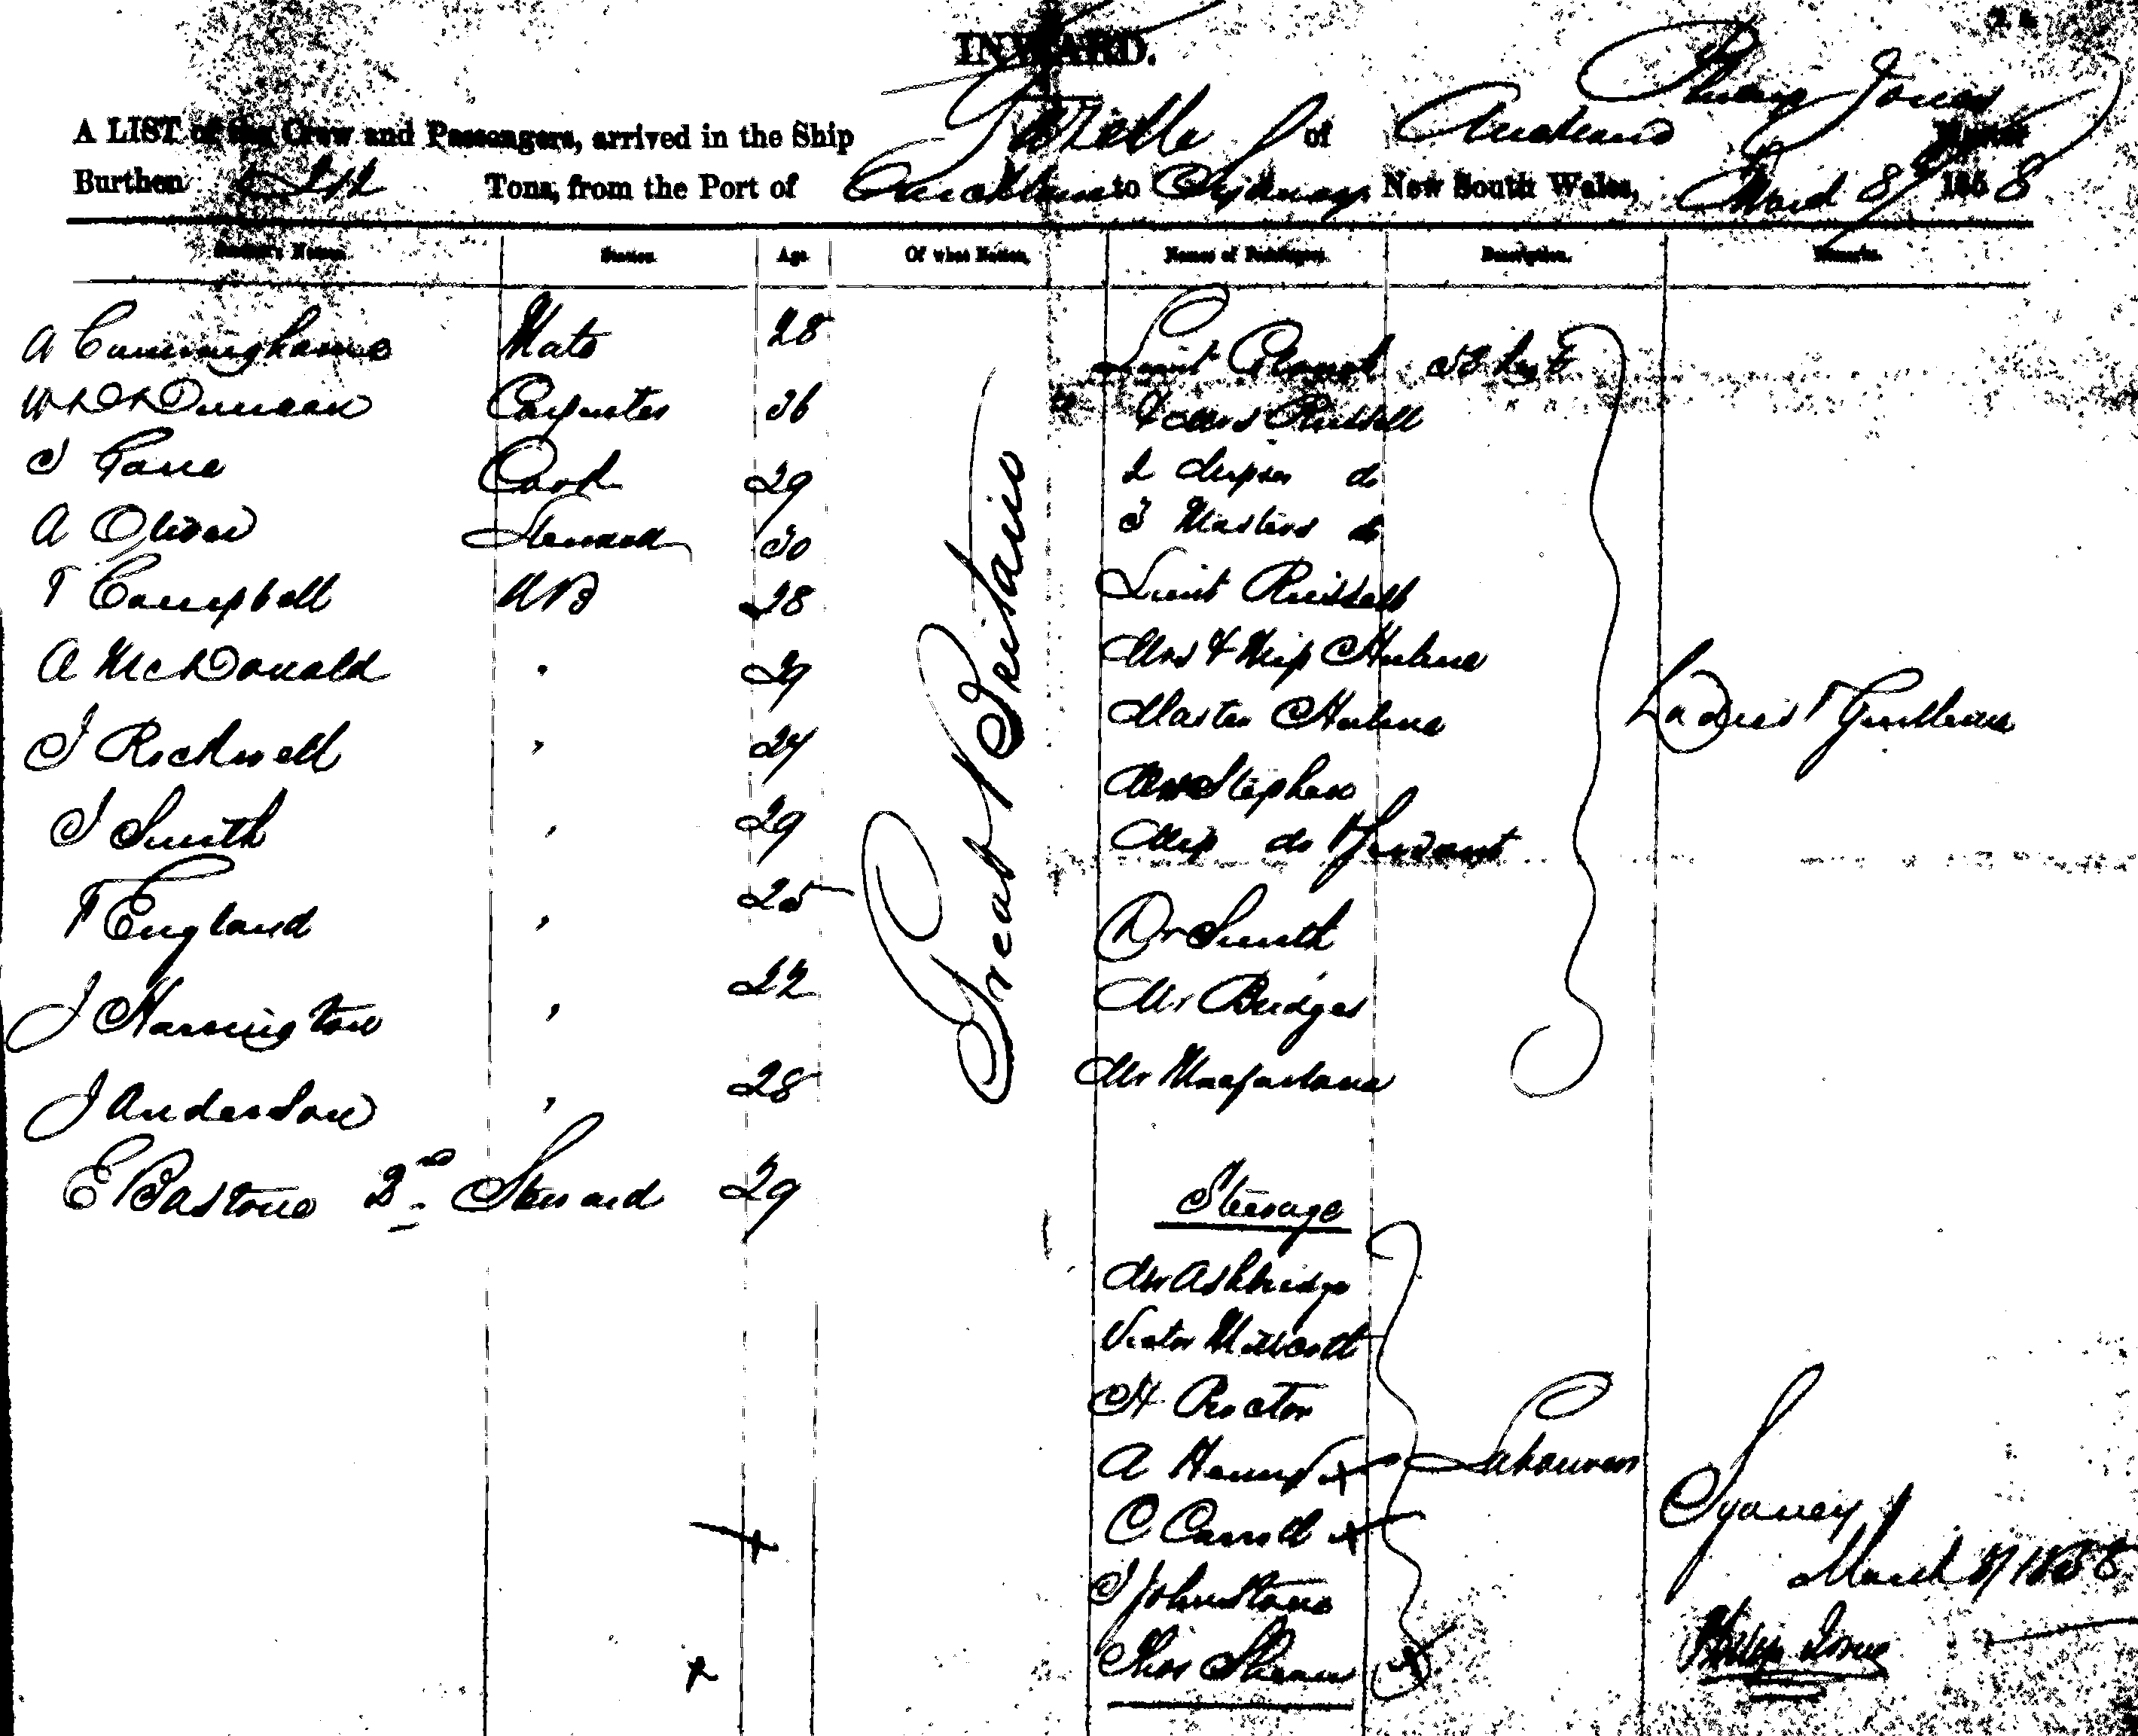 INWARD.
Philip Jones
A LIST of the Crew and Passengers, arrived in the Ship Gazelle of Auckland Master
Burthen 212 Tons, from the Port of Auckland to Sydney New South Wales, March 8/ 1858
Seamen's Names. Station. Age. Of what Nation. Names of Passengers. Description. Remarks.
A Cunninghame Mate 28
W Duncan Carpenter 36
J Cook 29
A Oliver Steward 30
T Campbell AB 28
A McDonald " 29
J Rockwell " 24
J Smith " 29
T England " 25
J Harrington " 22
J Anderson " 28
E Bastone 2nd Steward 29
Great Britain
Lieut Colonel 58 Regt
& Mrs Russell
2 Misses do
3 Masters do
Lieut Russell
Mrs & Miss Hulme
Master Hulme
Mrs Stephen
Miss do & Servant
Dr Smith
Mr Bridges
Mr Macfarlane
Ladies & Gentlemen
Steerage
Mr Ashbridge
Victor
H Proctor
A Henry x
C Carroll x
J Johnstone
Thos x
Labourers
Sydney
March 8/1858
Philip Jones
x
x